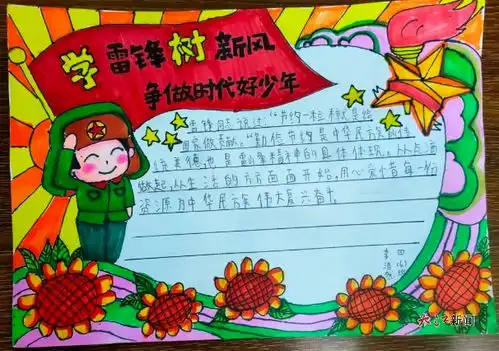 学雷锋树新风
争做时代好少年
雷锋同志说过："节约一粒粮就是给
国家做贡献。"勤俭节约是中华民族的传
统美德也是雷锋精神的具体体现。从点滴
做起，从生活的方方面面开始，用心爱惜每一份
资源，为中华民族伟大复兴奋斗。
四(6)班
新闻